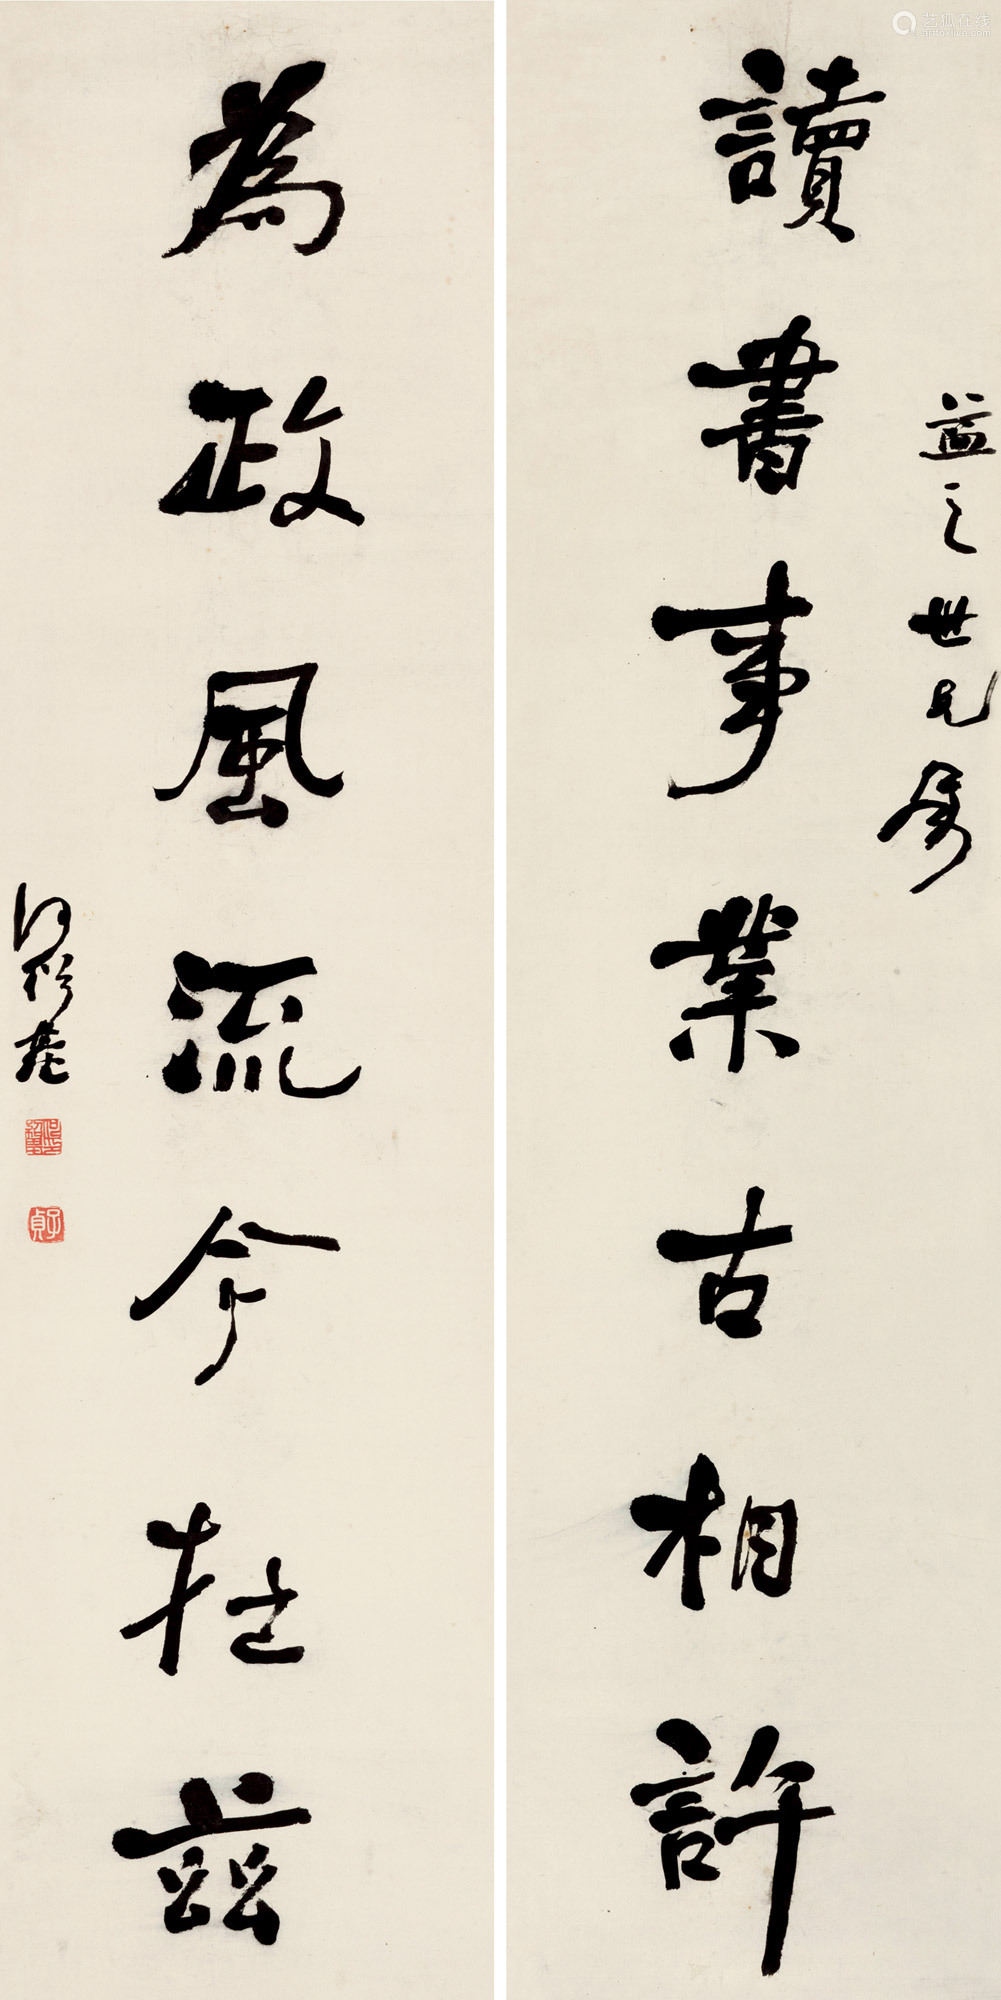 艺狐在线
artfoxlive.com
益之世兄屬
讀書事業古相許
為政風流今在茲
何紹基
子貞